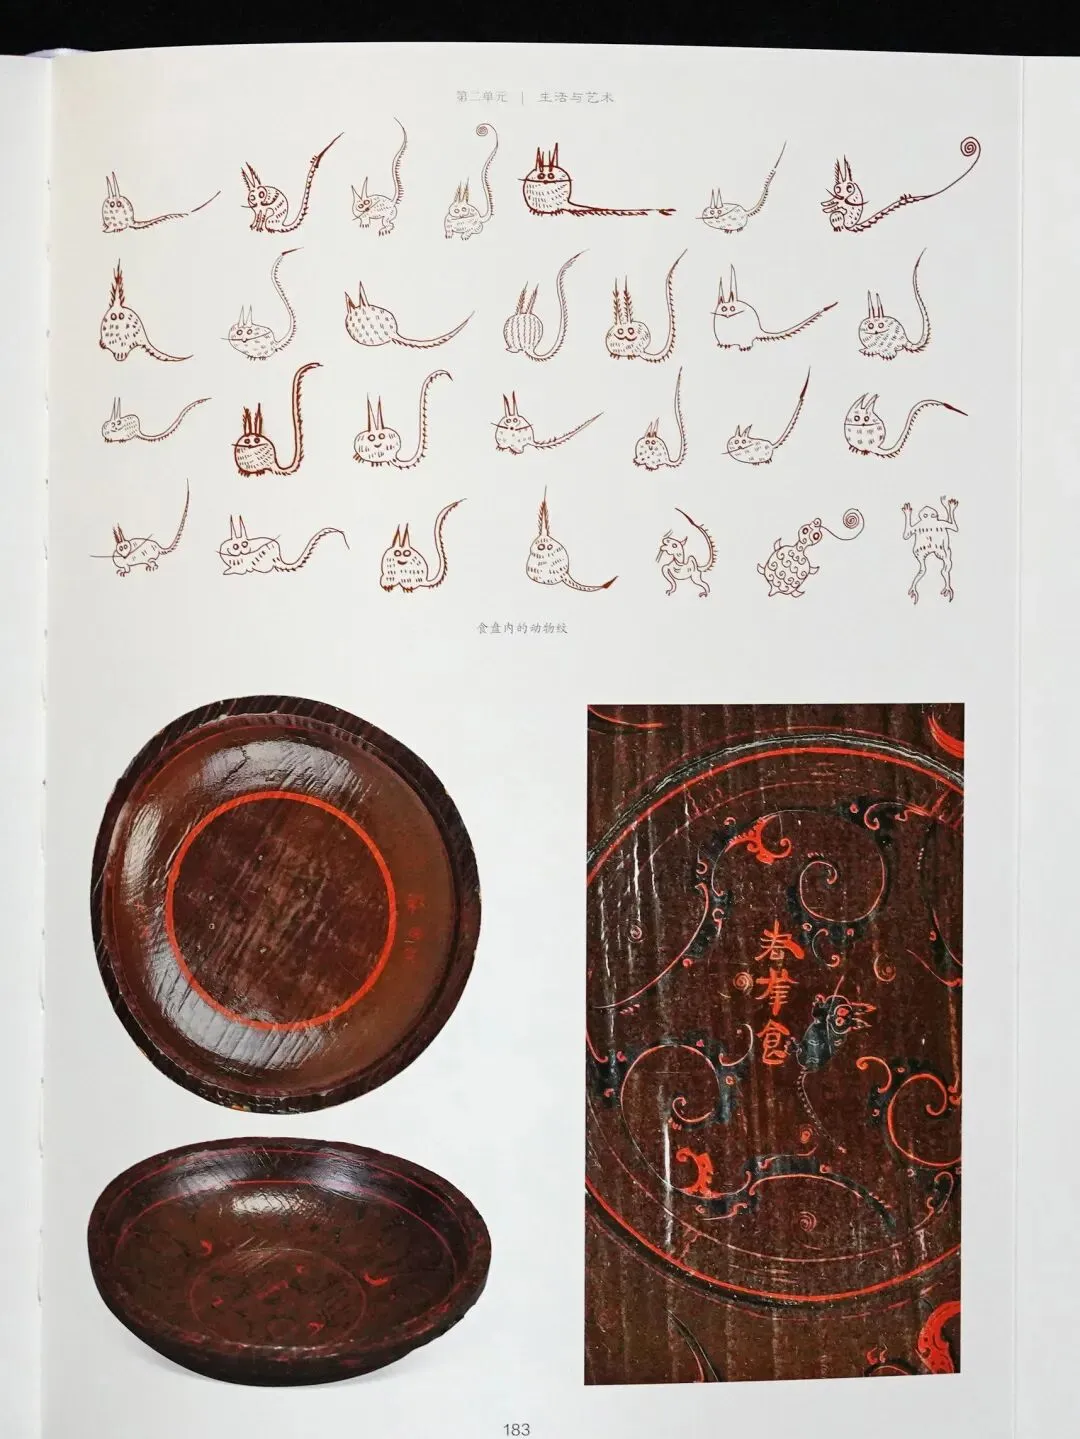 第二单元 | 生活与艺术
食盘内的动物纹
君幸食
183